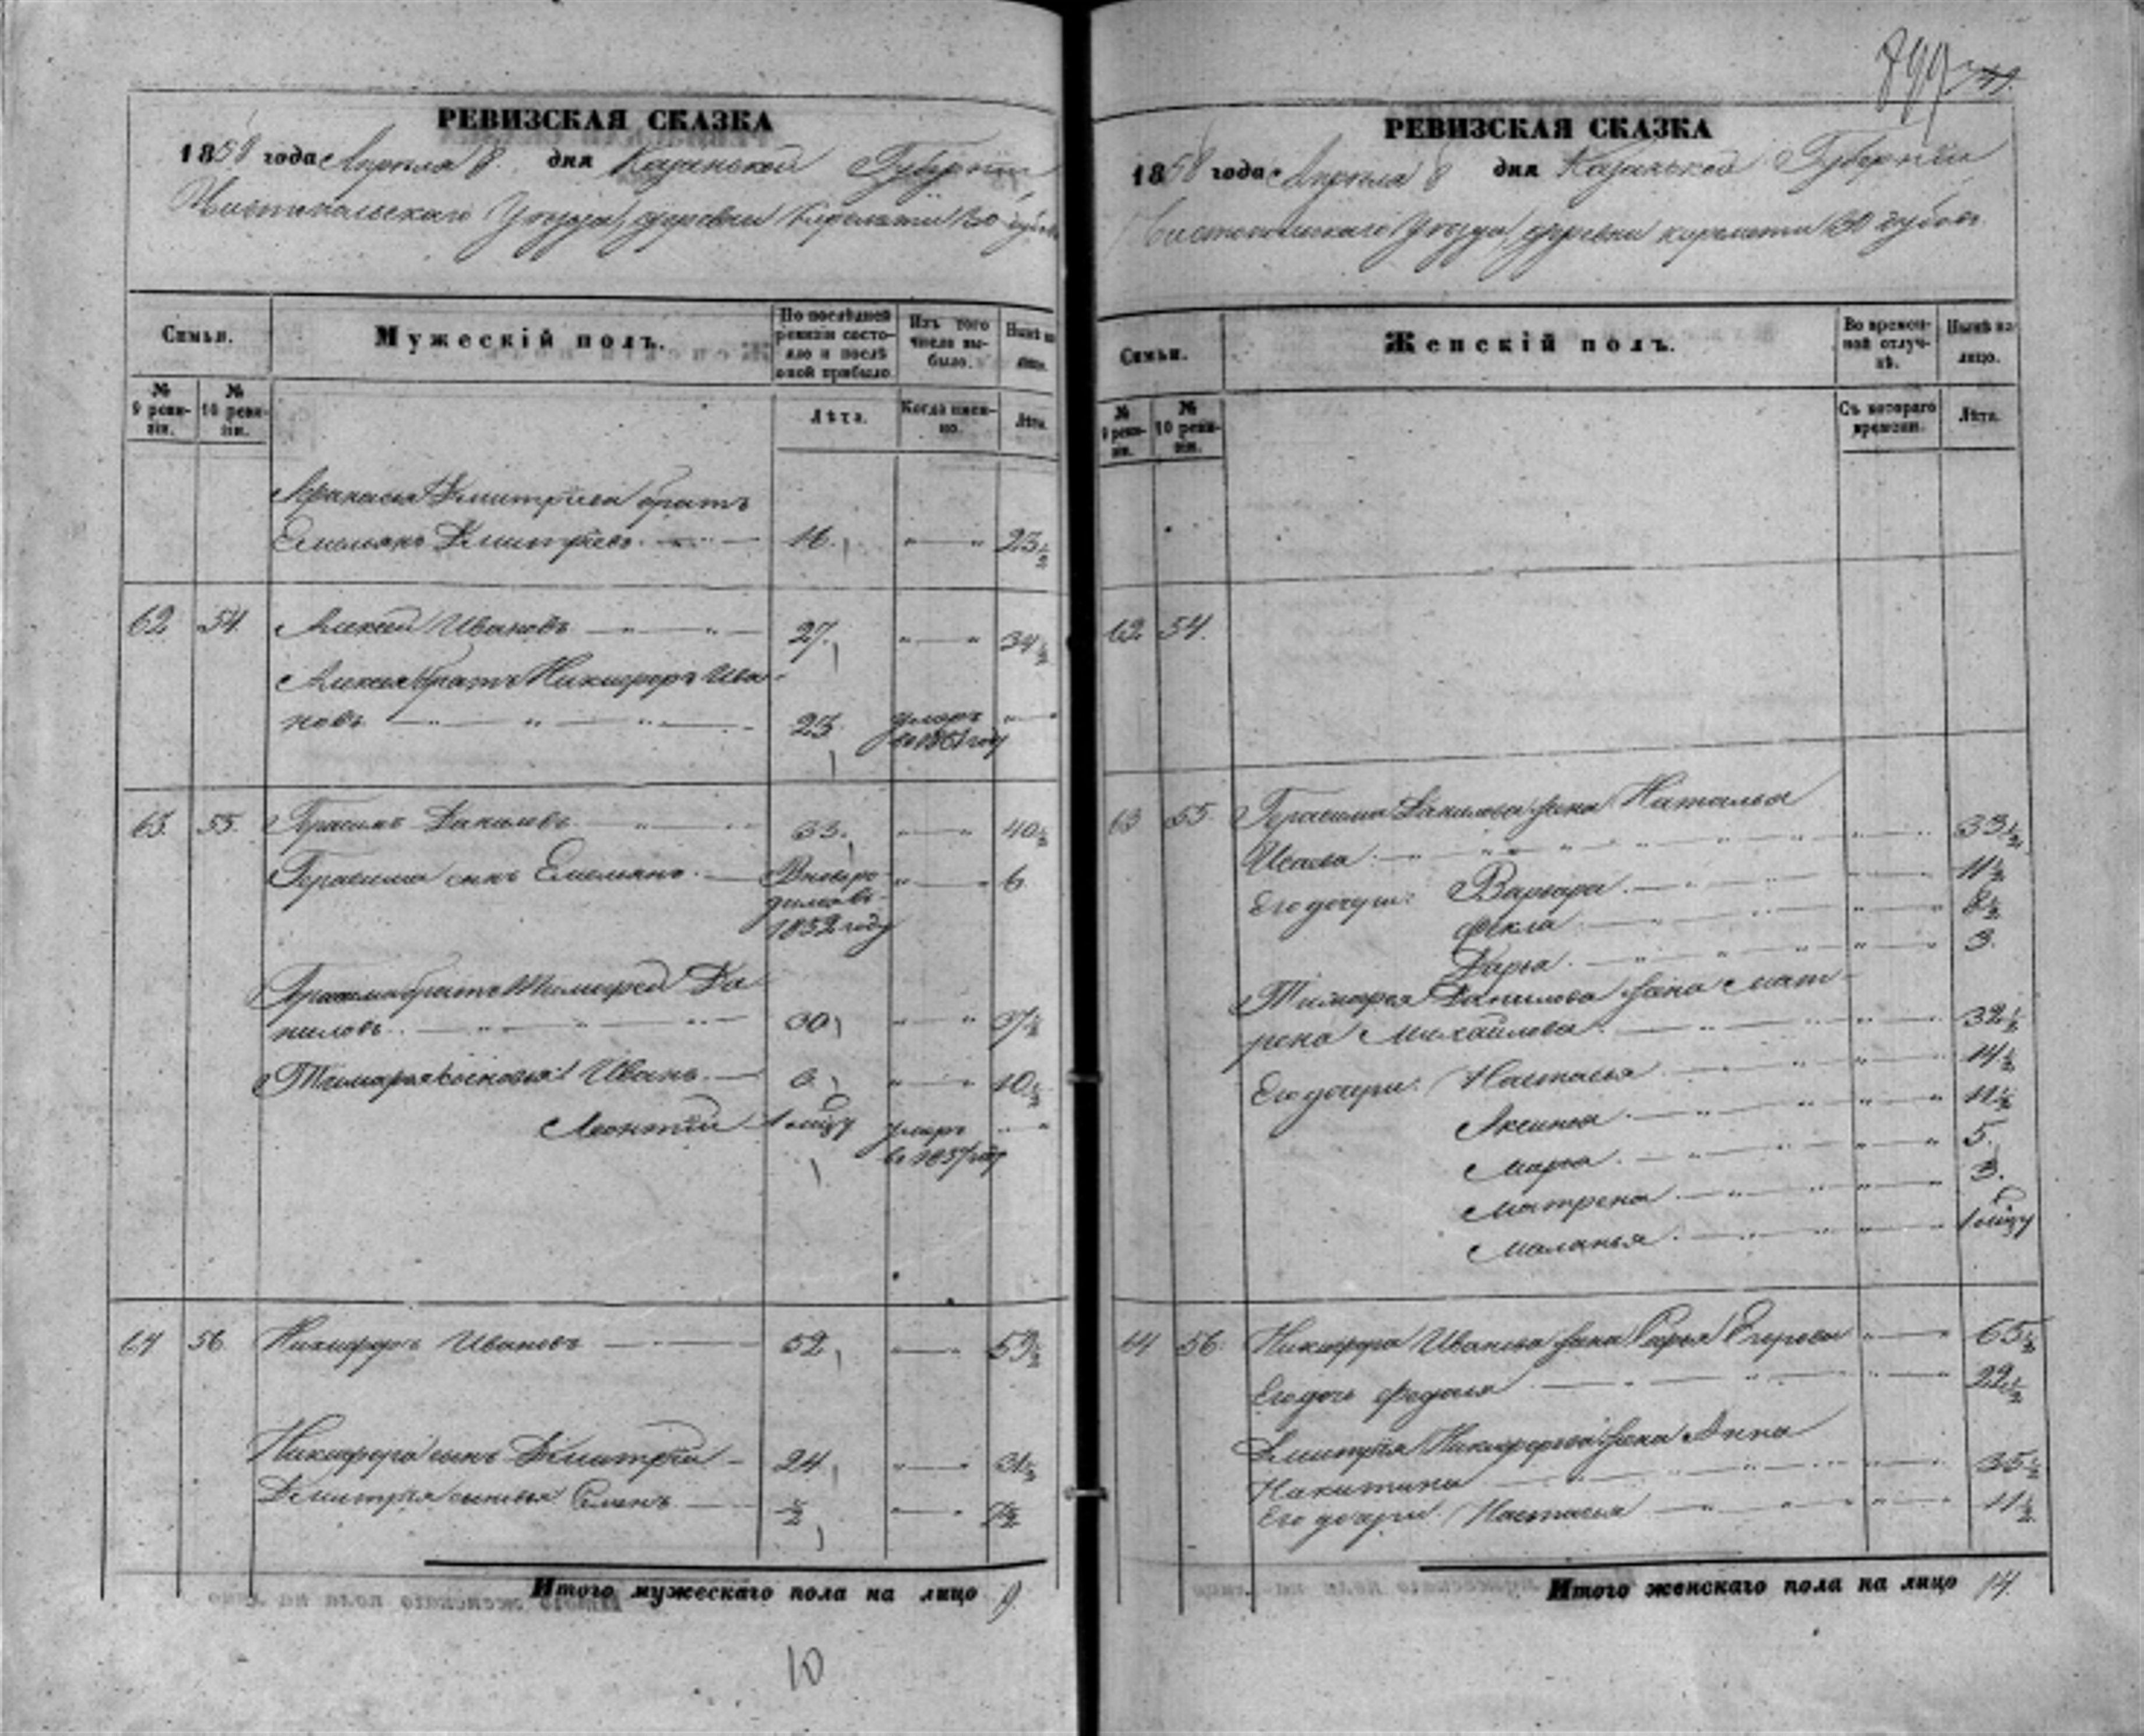 РЕВИЗСКАЯ СКАЗКА
1858 года Апреля 8 дня Казанской Губернии
Чистопольскаго Уезда, деревни Кереметь
Семьи.
Мужескій полъ.
По последней ревизіи состояло и после оной прибыло
Изъ того числа выбыло.
Ныне на лицо.
№ 9 ревизіи.
№ 10 ревизіи.
Лѣта.
Когда именно.
Лѣта.
Афанасья Дмитріева братъ
Емельянъ Дмитріевъ 16. 23 1/2
62 54. Алексей Ивановъ 27. 34 1/2
Алексея братъ Никифоръ Ива-
новъ 23. умеръ
63. 55. Герасимъ Даниловъ 33. 40 1/2
Герасима сынъ Емельянъ 6
1852 году
Герасима братъ Тимофей Да-
ниловъ 30, 37 1/2
Тимофея сыновья: Иванъ 3. 10 1/2
Леонтій умеръ
64 56. Никифоръ Ивановъ 52, 59 1/2
Никифора сынъ Дмитрій 24, 31 1/2
Дмитрія сыновья Семенъ 1/2
Итого мужескаго пола на лицо 9.
10
РЕВИЗСКАЯ СКАЗКА
1858 года Апреля 8 дня Казанской Губерніи
Чистопольскаго Уезда деревни керемети
Семьи.
Женскій полъ.
Во временной отлучкѣ.
Нынѣ на лицо.
№ 9 ревизіи.
№ 10 ревизіи.
Съ котораго времени.
Лѣта.
62 54.
63 55. Герасима Данилова жена Наталья
Исаева 33 1/2
Его дочери: Варвара 11 1/2
Фекла 8 1/2
Дарья 3.
Тимофея Данилова жена Мат-
рена Михайлова 32 1/2
Его дочери: Настасья 14 1/2
Аксинья 11 1/2
Марья 5.
Матрена 3.
Маланья
64 56. Никифора Иванова жена Софья Егорова 65 1/2
Его дочь 22 1/2
Дмитрія Никифорова жена Анна
Никитина 35 1/2
Его дочери: Настасья 11 1/2
Итого женскаго пола на лицо 14.